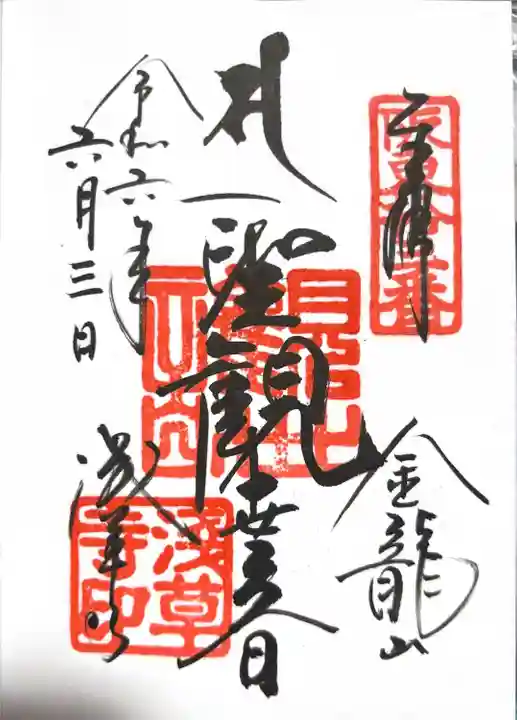 奉拝
坂東十三番
金龍山
聖観世音
令和六年
六月三日
浅草寺
浅草寺印